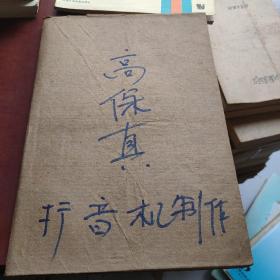 高保真
扩音机制作